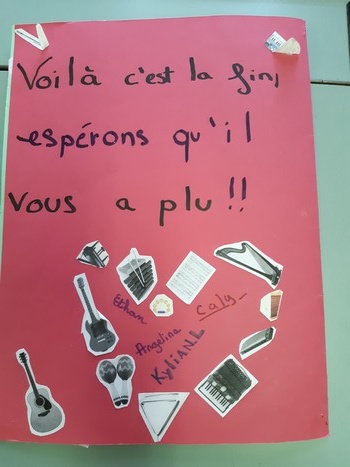 Voilà c'est la fin,
espérons qu'il
vous a plu !!
Ethan
Caly
Angelina
KyliANN